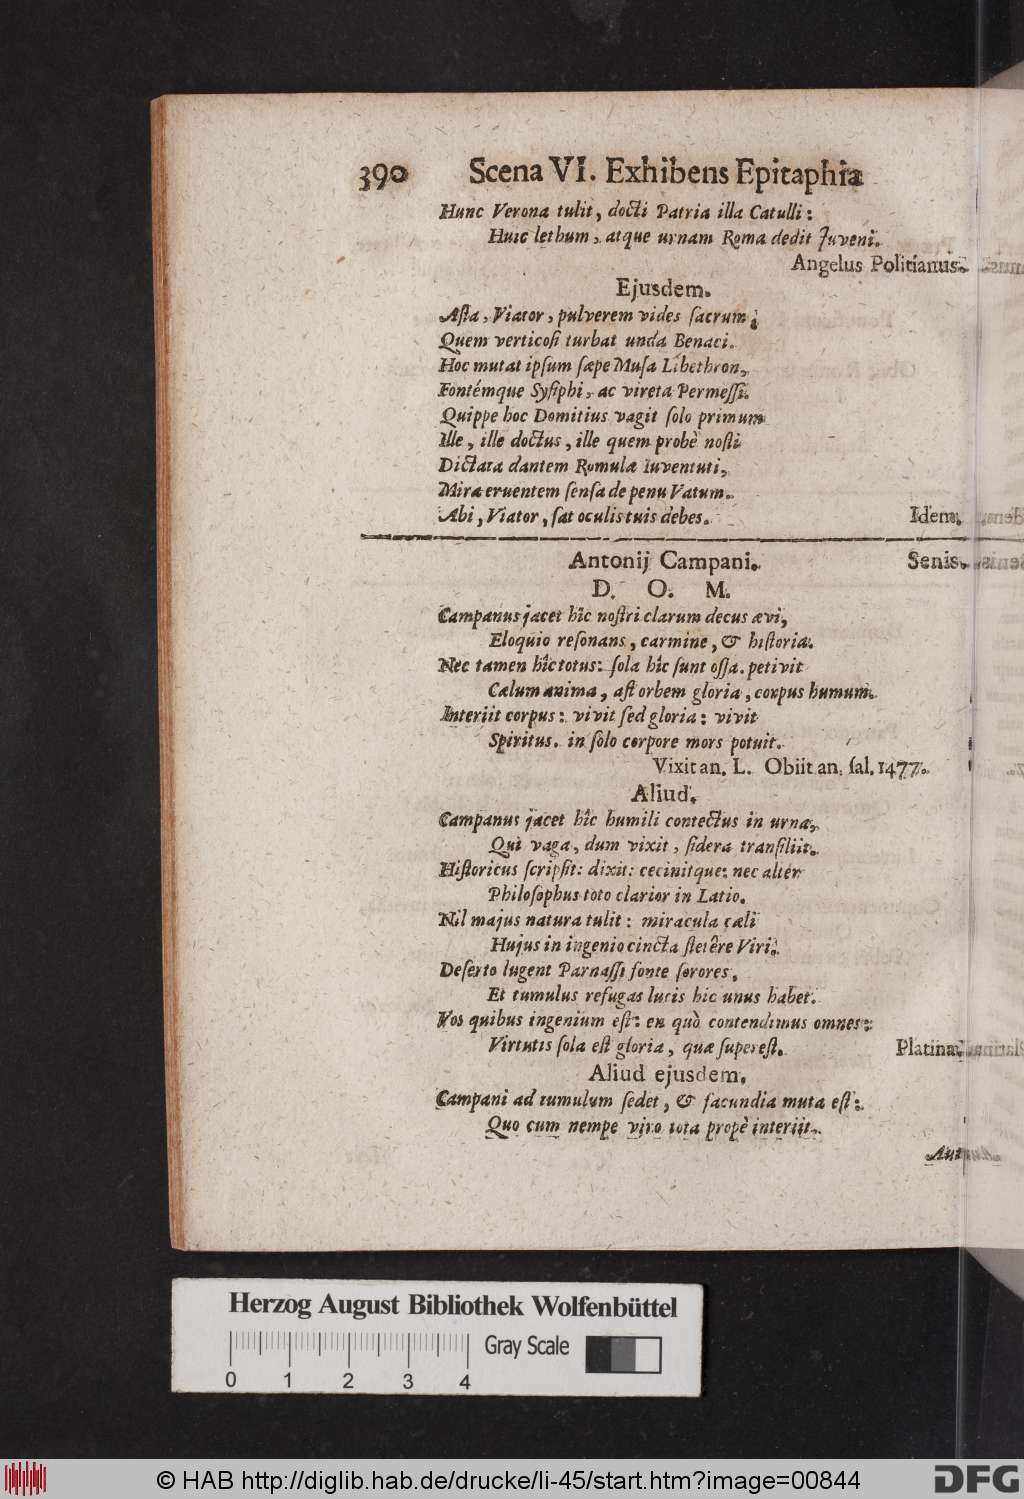 390 Scena VI. Exhibens Epitaphia
Hunc Verona tulit, docti Patria illa Catulli:
Huic lethum, atque urnam Roma dedit Juveni.
Angelus Politianus.
Ejusdem.
Asta, Viator, pulverem vides sacrum;
Quem verticosi turbat unda Benaci.
Hoc mutat ipsum sæpe Musa Libethron,
Fontémque Sysiphi, ac vireta Permessi.
Quippe hoc Domitius vagit solo primum
Ille, ille doctus, ille quem probè nosti
Dictata dantem Romulæ Iuventuti,
Mira eruentem sensa de penu Vatum.
Abi, Viator, sat oculis tuis debes. Idem.
Antonij Campani. Senis.
D. O. M.
Campanus jacet hîc nostri clarum decus ævi,
Eloquio resonans, carmine, & historia.
Nec tamen hîc totus: sola hîc sunt ossa. petivit
Cælum anima, ast orbem gloria, corpus humum.
Interiit corpus: vivit sed gloria: vivit
Spiritus. in solo corpore mors potuit.
Vixit an. L. Obiit an. sal. 1477.
Aliud.
Campanus jacet hîc humili contectus in urna,
Qui vaga, dum vixit, sidera transiliit.
Historicus scripsit: dixit: cecinitque: nec alter
Philosophus toto clarior in Latio.
Nil majus natura tulit: miracula cæli
Hujus in ingenio cincta stetêre Viri.
Deserto lugent Parnassi fonte sorores,
Et tumulus refugas lucis hic unus habet.
Vos quibus ingenium est: en quò contendimus omnes:
Virtutis sola est gloria, quæ superest. Platina.
Aliud ejusdem.
Campani ad tumulum sedet, & facundia muta est:
Quo cum nempe viro tota propè interiit.
Herzog August Bibliothek Wolfenbüttel
Gray Scale
0 1 2 3 4
© HAB http://diglib.hab.de/drucke/li-45/start.htm?image=00844
DFG